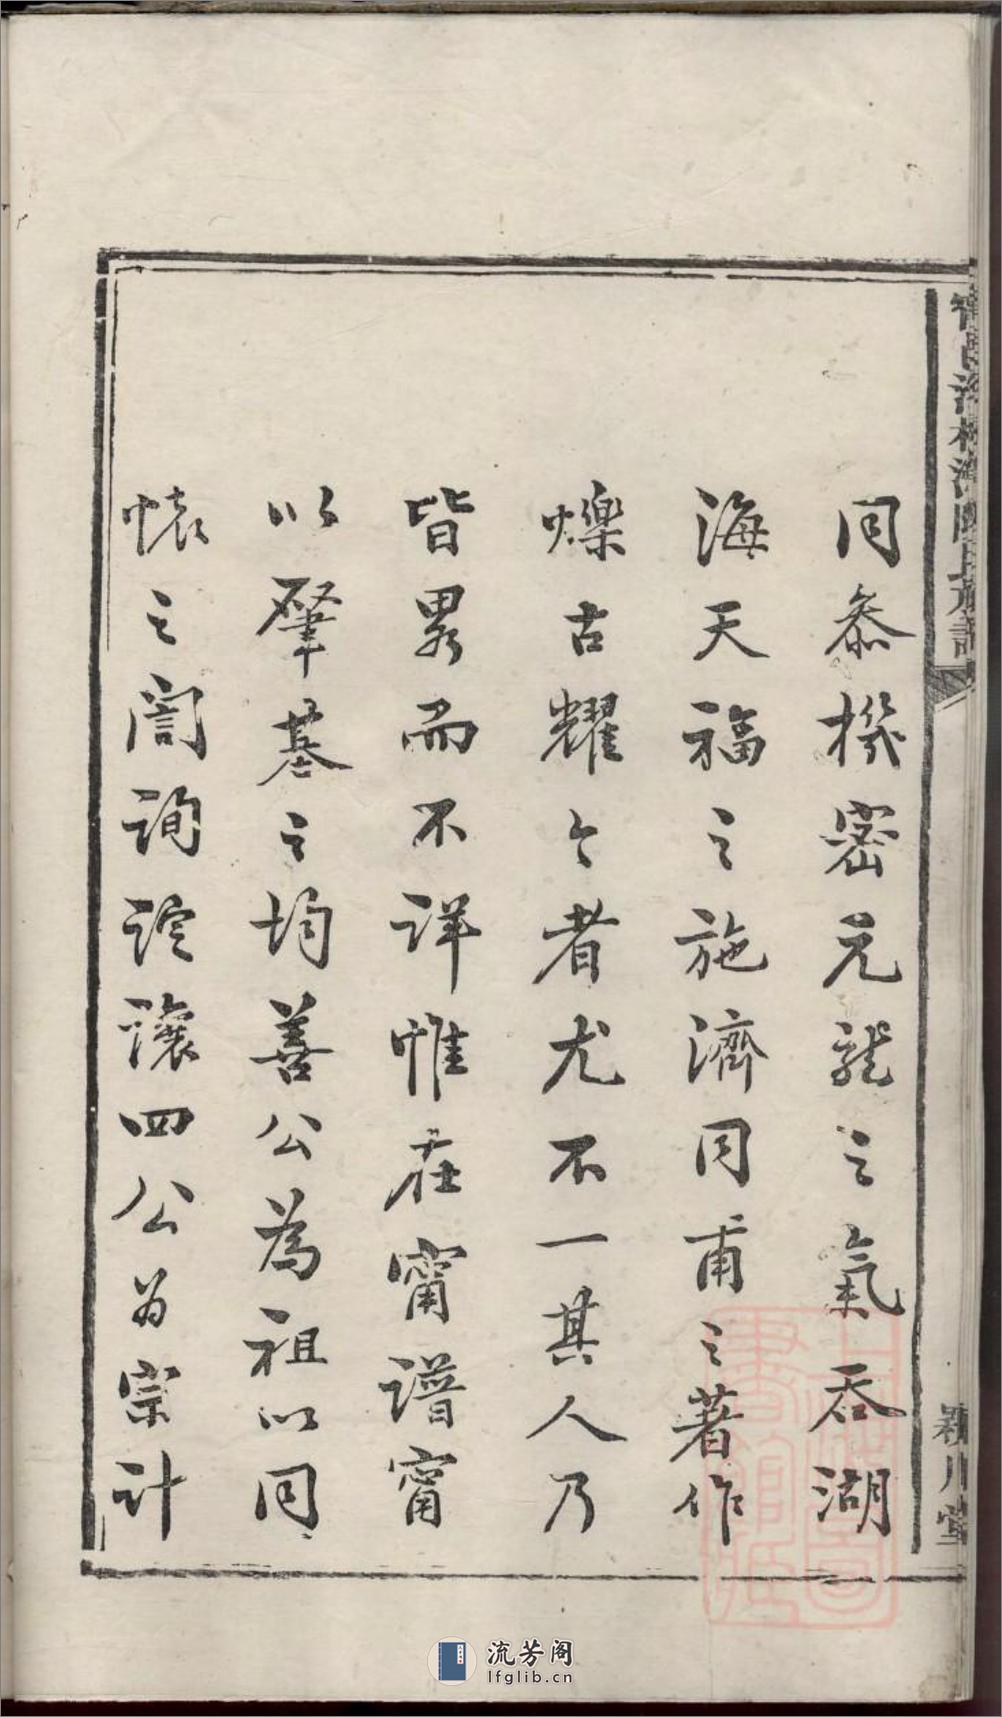 同叅機密元龍之氣吞湖
海天福之施濟同甫之著作
爍古耀今者尤不一其人乃
皆畧而不詳惟在甯譜甯
以肇基之均善公為祖以同
懷之誾詢諠讓四公為宗計
氏族譜
潁川堂
流芳阁
lfglib.cn